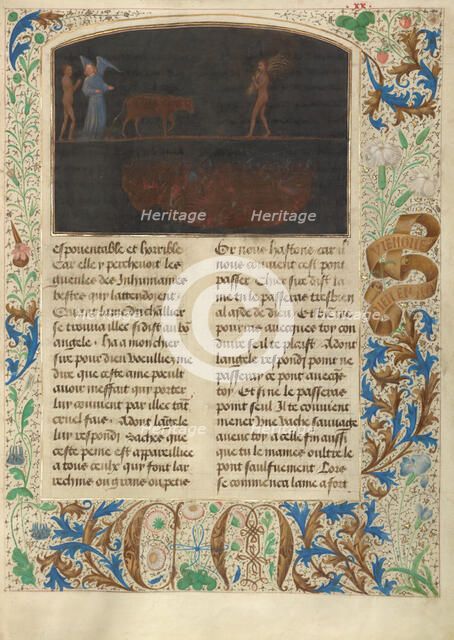 xx
espouentable et horrible
Car elle y percheuoit les
gueules des Inhumaines
bestes qui lattendoient
Et
se trouua illec si dist au bo
angele . ha a mon chier
sire pour dieu voeullies me
dire que ceste ame poeult
auoir meffait qui porter
luy conuient par illec tāt
cruel fais . Adont langele
luy respondi Saches que
ceste peine est appareillie
a tous ceulx qui font lar
rechins ou grans ou petis
Or nous hastons car il
nous conuient cest pont
passer . Chier sire dist la
me tu le passeras tresbien
al ayde de dieu . Et se tu ne
pourras auecques toy con
duire se il te plaist . Adont
langele respondi point ne
passeray ce pont auecques
toy . Et sine le passeras
point seul Il te conuient
mener vne vache sauuage
auec toy a celle fin aussi
que tu le maines oultre le
pont saulfuement Lors
se commenca lame a fort
Heritage
Heritage
Heritage
Heritage
Heritage
Heritage